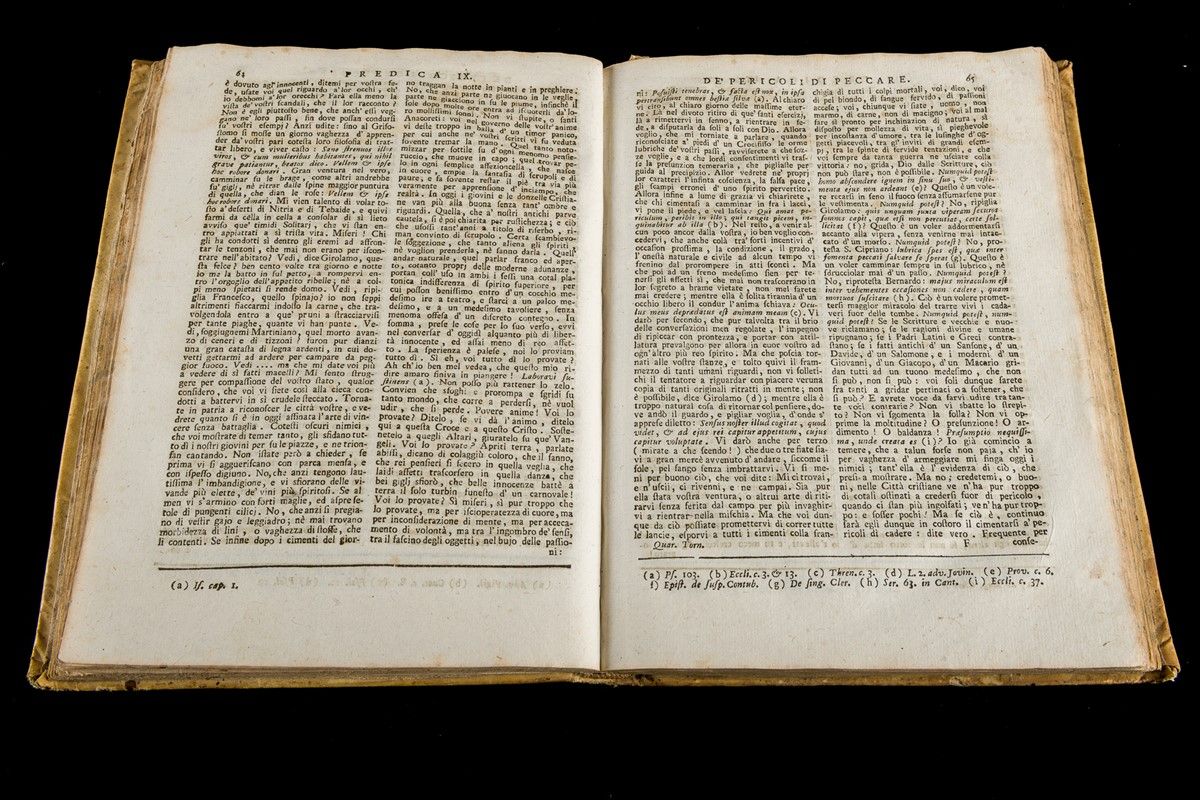 64
PREDICA IX.
è dovuto agl'innocenti, ditemi per voſtra fe-
de, uſate voi quel riguardo a'lor occhi, ch'
io debbomi a'lor orecchi? Farà ella meno la
viſta de' voſtri ſcandali, che il lor racconto?
Non è egli piuttoſto bene, che anch'eſſi veg-
gano ne' lor paſſi, ſin dove poſſan condurſi
ſu' voſtri eſempj? Anzi udite: ſino al Griſo-
ſtomo ſi moſſe un giorno vaghezza d'appren-
der da' voſtri pari coteſta loro filoſofia di trat-
tar libero, e viver caſto: Sunt ſtrenuos illos
viros, & cum mulieribus habitantes, qui nihil
grave patiantur, beatos dico. Vellem & ipſe
hoc robore donari. Gran ventura nel vero,
camminar fu le brage, come altri andrebbe
ſu' gigli, nè ritrar dalle ſpine maggior puntura
di quella, che dian le roſe: Vellem & ipſe
hoc robore donari. Mi vien talento di volar to-
ſto a'deſerti di Nitria e di Tebaide, e quivi
farmi da cella in cella a conſolar di sì lieto
avviſo que' timidi Solitarj, che vi ſtan en-
tro appiattati a sì triſta vita. Miſeri! Chi
gli ha condotti sì dentro gli eremi ad affron-
tar le tenzoni, che mai non erano per iſcon-
trare nell'abitato? Vedi, dice Girolamo, que-
ſta ſelce? ben cento volte tra giorno e notte
io me la batto in ſul petto, a rompervi en-
tro l'orgoglio dell'appetito ribelle; nè a col-
pi meno ſpietati ſi rende domo. Vedi, ripi-
glia Franceſco, quello ſpinajo? io non ſeppi
altrimenti fiaccarmi indoſſo la carne, che tra-
volgendola entro a que' pruni a ſtracciarviſi
per tante piaghe, quante vi han punte. Ve-
di, ſoggiugnemi Martiniano, quel morto avan-
zo di ceneri e di tizzoni? furon pur dianzi
una gran cataſta di legna ardenti, in cui do-
vetti gettarmi ad ardere per campare da peg-
gior fuoco. Vedi .... ma che mi date voi più
a vedere di sì fatti macelli? Mi ſento ſtrug-
gere per compaſſione del voſtro ſtato, qualor
conſidero, che voi vi ſiete così alla cieca con-
dotti a battervi in sì crudele ſteccato. Torna-
te in patria a riconoſcer le città voſtre, e ve-
drete quanto ſi è in oggi affinata l'arte di vin-
cere ſenza battaglia. Coteſti oſcuri nimici,
che voi moſtrate di temer tanto, gli sfidano tut-
to dì i noſtri giovani per ſu le piazze, e ne trion-
fan cantando. Non iſtate però a chieder, ſe
prima vi ſi agguerriſcano con parca menſa, e
con iſpeſſo digiuno. No, che anzi tengono lau-
tiſſima l'imbandigione, e vi sfiorano delle vi-
vande più elette, de' vini più ſpiritoſi. Se al
men vi s'armino con forti maglie, ed aſpre ſe-
tole di pungenti cilicj. No, che anzi ſi pregia-
no di veſtir gajo e leggiadro; nè mai trovano
morbidezza di lini, o vaghezza di ſtoffe, che
li contenti. Se infine dopo i cimenti del gior-
no traggan la notte in pianti e in preghiere.
No, che anzi parte ne giuocano in le veglie,
parte ne giacciono in ſu le piume, inſinchè il
ſole dopo molte ore entra ad iſcuoterli da'lo-
ro moltiſſimi ſonni. Non vi ſtupite, o ſanti
Anacoreti: voi nel governo delle voſtr'anime
vi deſte troppo in balìa d'un timor panico,
per cui anche ne' voſtri ſerj oggetti vi fu veduta
ſovente tremar la mano. Quel tanto noto-
mizzar per ſottile ſu d'ogni menomo penſie-
ruccio, che muove in capo; quel trovar pe-
lo in ogni ſemplice affezioncella, che naſce
in cuore, empie la fantaſia di ſcrupoli e di
paure; e fa ſovente reſtar il piè tra via più
veramente per apprenſione d'inciampo, che
realtà. In oggi i giovani e le donzelle Criſtia-
ne van più alla buona ſenza tant'ombre e
riguardi. Quella, che a' noſtri antichi parve
cautela, ſi è poi chiarita per ruſtichezza; e ciò
che uſoſſi tant'anni a titolo di riſerbo, ri-
man convinto di ſcrupolo. Certa ſcambievo-
le ſoggezione, che tanto aliena gli ſpiriti,
nè voglion prenderla, nè ſanno darla. Quell'
andar naturale, quel parlar franco ed aper-
to, cotanto proprj delle moderne adunanze,
portan coll'uſo in ambi i ſeſſi una cotal pla-
tonica indifferenza di ſpirito ſuperiore, per
cui poſſon beniſſimo entro d'un cocchio me-
deſimo ire a teatro, e ſtarci a un palco me-
deſimo, e a un medeſimo tavoliere, ſenza
menoma offeſa d'un diſcreto contegno. In
ſomma, preſe le coſe per lo ſuo verſo, evvi
nel converſar d'oggidì alquanto più di liber-
tà innocente, ed aſſai meno di reo affet-
to. La ſperienza è paleſe, noi lo proviam
tutto dì. Sì eh, voi tutto dì lo provate?
Ah ch'io ben mel vedea, che queſto mio ri-
dire amaro finiva in piangere! Laboravi ſu-
ſtinens (a). Non poſſo più rattener lo zelo.
Convien che sfoghi e prorompa e ſgridi ſu
tanto mondo, che corre a perderſi, nè vuol
udir, che ſi perde. Povere anime! Voi lo
provate? Ditelo, ſe vi dà l'animo, ditelo
qui a queſta Croce e a queſto Criſto. Soſte-
netelo a quegli Altari, giuratelo ſu que' Van-
geli. Voi lo provate? Apriti terra, parlate
abiſſi, dicano di colaggiù coloro, che il ſanno,
che rei penſieri ſi fecero in quella veglia, che
laidi affetti traſcorſero in quella danza, che
bei gigli sfiorò, che belle innocenze battè a
terra il ſolo turbin funeſto d'un carnovale!
Voi lo provate? Sì miſeri, sì pur troppo che
lo provate, ma per iſcioperatezza di cuore, ma
per inconſiderazione di mente, ma per acceca-
mento di volontà, ma tra l'ingombro de'ſenſi,
tra il faſcino degli oggetti, nel bujo delle paſſio-
ni:
(a) Iſ. cap. 1.
DE' PERICOLI DI PECCARE.
65
ni: Poſuiſti tenebras, & facta eſt nox, in ipſa
pertranſibunt omnes beſtiæ ſilvæ (a). Al chiaro
vi cito, al chiaro giorno delle maſſime eter-
ne. Là nel divoto ritiro di que' ſanti eſercizj,
là a rimettervi in ſenno, a rientrare in fe-
de, a diſputarla da ſoli a ſoli con Dio. Allora
voglio, che mi torniate a parlare, quando
riconoſciate a' piedi d'un Crocifiſſo le orme
lubriche de' voſtri paſſi, ravviſerete a che ſoz-
ze voglie, e a che lordi conſentimenti vi traſ-
ſe la preſunzion temeraria, che pigliaſte per
guida al precipizio. Allor vedrete ne' proprj
lor caratteri l'infinta coſcienza, la falſa pace,
gli ſcampi erronei d'uno ſpirito pervertito.
Allora infine a lume di grazia vi chiarirete,
che chi cimentaſi a camminar in fra i lacci,
vi pone il piede, e vel laſcia: Qui amat pe-
riculum, peribit in illo; qui tangit picem, in-
quinabitur ab illa (b). Nel reſto, a venir al-
cun poco ancor dalla voſtra, io ben voglio con-
cedervi, che anche colà tra'forti incentivi d'
occaſion proſſima, la condizione, il grado,
l'oneſtà naturale e civile ad alcun tempo vi
frenino dal prorompere in atti ſconci. Ma
che poi ad un freno medeſimo ſien per te-
nerſi gli affetti sì, che mai non traſcorrano in
lor ſegreto a brame vietate, non mel farete
mai credere; mentre ella è ſolita tirannia d'un
occhio libero il condur l'anima ſchiava: Ocu-
lus meus deprædatus eſt animam meam (c). Vi
darò per ſecondo, che pur talvolta tra il brio
delle converſazioni men regolate, l'impegno
di ripiccar con prontezza, e portar con atti-
latura prevalgono per allora in cuor voſtro ad
ogn'altro più reo ſpirito. Ma che poſcia tor-
nati alle voſtre ſtanze, e tolto quivi il fram-
mezzo di tanti umani riguardi, non vi ſolleti-
chi il tentatore a riguardar con piacere veruna
copia di tanti originali ritratti in mente; non
è poſſibile, dice Girolamo (d); mentre ella è
troppo natural coſa di ritornar col penſiere, do-
ve andò il guardo, e pigliar voglia, d'onde s'
appreſe diletto: Senſus noſter illud cogitat, quod
videt, & ad ejus rei capitur appetitum, cujus
capitur voluptate. Vi darò anche per terzo
(mirate a che ſcendo!) che due o tre fiate ſia-
vi a gran mercè avvenuto d'andare, ſiccome il
ſole, pel fango ſenza imbrattarvi. Vi ſi me-
ni per buono ciò, che voi dite: Mi ci trovai,
e n'uſcii, ci rivenni, e ne campai. Sia pur
ella ſtata voſtra ventura, o altrui arte di riti-
rarvi ſenza ferita dal campo per più invaghir-
vi a rientrar nella miſchia. Ma che voi dun-
que da ciò poſſiate promettervi di correr tutte
le lancie, eſporvi a tutti i cimenti colla fran-
Quar. Torn.
chigia di tutti i colpi mortali, voi, dico, voi
di pel biondo, di ſangue fervido, di paſſioni
acceſe; voi, chiunque vi ſiate, uomo, non
marmo, di carne, non di macigno, voi al mal
fare sì pronto per inchinazion di natura, sì
diſpoſto per mollezza di vita, sì pieghevole
per incoſtanza d'umore, tra le luſinghe d'og-
getti piacevoli, tra gl'inviti di grandi eſem-
pj, tra le ſpinte di fervide tentazioni, e che
voi ſempre da tanta guerra ne uſciate colla
vittoria? no, grida, Dio dalle Scritture, ciò
non può ſtare, non è poſſibile. Numquid poteſt
homo abſcondere ignem in ſinu ſuo, & veſti-
menta ejus non ardeant (e)? Queſto è un vole-
re recarſi in ſeno il fuoco ſenza affumarſene pur
le veſtimenta. Numquid poteſt? No, ripiglia
Girolamo: quis unquam juxta viperam ſecuros
ſomnos capit, quæ etſi non percutiat, certe ſol-
licitat (f)? Queſto è un voler addormentarſi
accanto alla vipera, ſenza venirne mai intac-
cato d'un morſo. Numquid poteſt? No, pro-
teſta S. Cipriano: lubrica ſpes eſt, quæ inter
fomenta peccati ſalvare ſe ſperat (g). Queſto è
un voler camminar ſempre in ſul lubrico, nè
ſdrucciolar mai d'un paſſo. Numquid poteſt?
No, riproteſta Bernardo: majus miraculum eſt
inter vehementes occaſiones non cadere, quam
mortuos ſuſcitare (h). Ciò è un volere promet-
terſi maggior miracolo del trarre vivi i cada-
veri fuor delle tombe. Numquid poteſt, num-
quid poteſt? Se le Scritture e vecchie e nuo-
ve riclamano; ſe le ragioni divine e umane
ripugnano; ſe i Padri Latini e Greci contra-
ſtano; ſe i fatti antichi d'un Sanſone, d'un
Davide, d'un Salomone, e i moderni d'un
Giovanni, d'un Giacopo, d'un Macario gri-
dan tutti ad un tuono medeſimo, che non
ſi può, non ſi può: voi ſoli dunque ſarete
fra tanti a gridar pertinaci o a ſoſtener, che
ſi può? E avrete voce da farvi udire tra tan-
te voci contrarie? Non vi sbatte lo ſtrepi-
to? Non vi ſgomenta la folla? Non vi op-
prime la moltitudine? O preſunzione! O ar-
dimento! O baldanza! Præſumptio nequiſſi-
ma, unde creata es (i)? Io già comincio a
temere, che a talun forſe non paja, ch'io
per vaghezza d'armeggiare mi finga oggi i
nimici; tant'ella è l'evidenza di ciò, che
preſi a moſtrare. Ma no; credetemi, o buo-
ni, nelle Città criſtiane ve n'ha pur troppo
di cotali oſtinati a crederſi fuor di pericolo,
quando ci ſtan più ingolfati; ve n'ha pur trop-
po: e foſſer pochi! Ma ſe ciò è, continuo
ſarà egli dunque in coſtoro il cimentarſi a'pe-
ricoli di cadere: dite vero. Frequente per
F
conſe-
(a) Pſ. 103. (b) Eccli. c. 3. & 13. (c) Thren. c. 3. (d) L. 2. adv. Jovin. (e) Prov. c. 6.
f) Epiſt. de ſuſp. Contub. (g) De ſing. Cler. (h) Ser. 63. in Cant. (i) Eccli. c. 37.